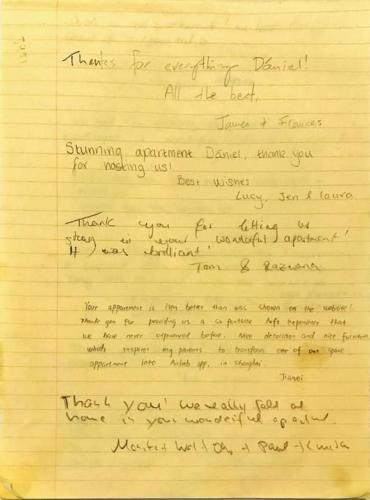 Thanks for everything Daniel!
All the best,
James & Frances
Stunning apartment Daniel, thank you
for hosting us!
Best Wishes
Lucy, Jen & Laura
Thank you for letting us
stay in your wonderful apartment!
It was brilliant!
Tom &
Your appartment is even better than was shown on the website!
Thank you for providing us a experience that
we have never experienced before. Nice decoration and nice furniture
which inspires my parents to transform one of our spare
appartment into Airbnb app. in Shanghai
Thank you! We really felt at
home in your wonderful
Paul